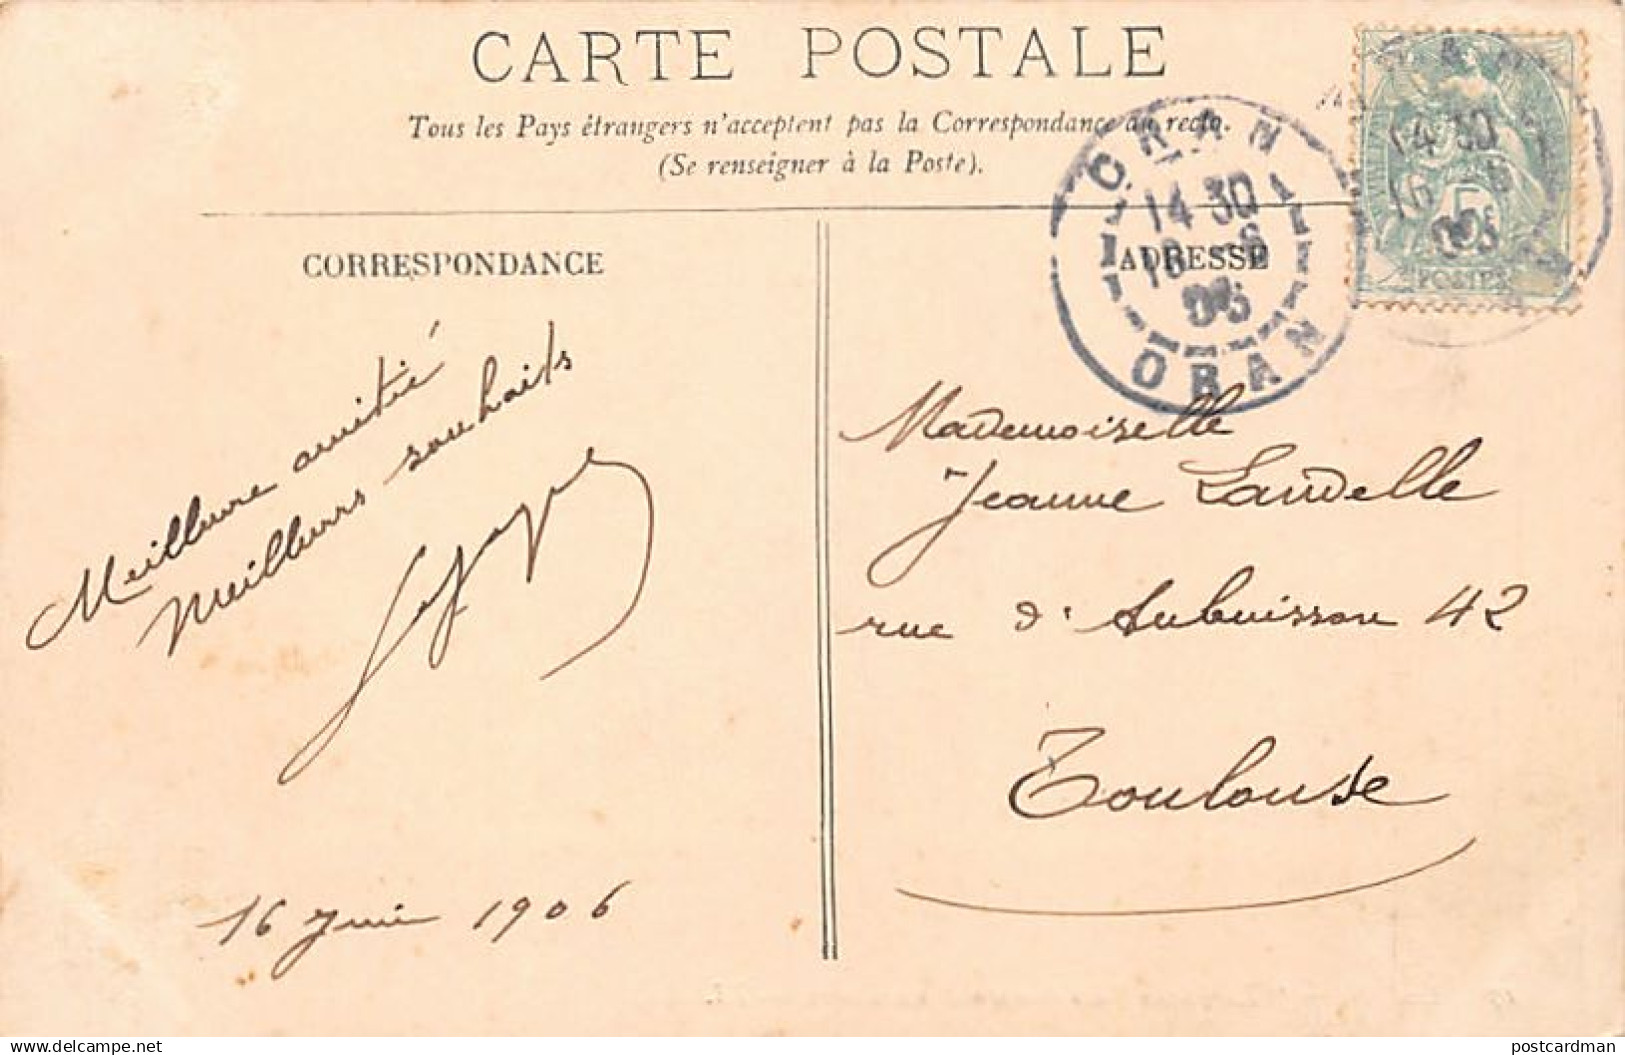 CARTE POSTALE
Tous les Pays étrangers n'acceptent pas la Correspondance au recto.
(Se renseigner à la Poste).
CORRESPONDANCE
ADRESSE
ORAN
14 30
16
ORAN
14 30
16
5
POSTES
Meilleure amitié
Meilleurs souhaits
16 Juin 1906
Mademoiselle
Jeanne Landelle
rue d'Aubuisson 42
Toulouse
www.delcampe.net
postcardman